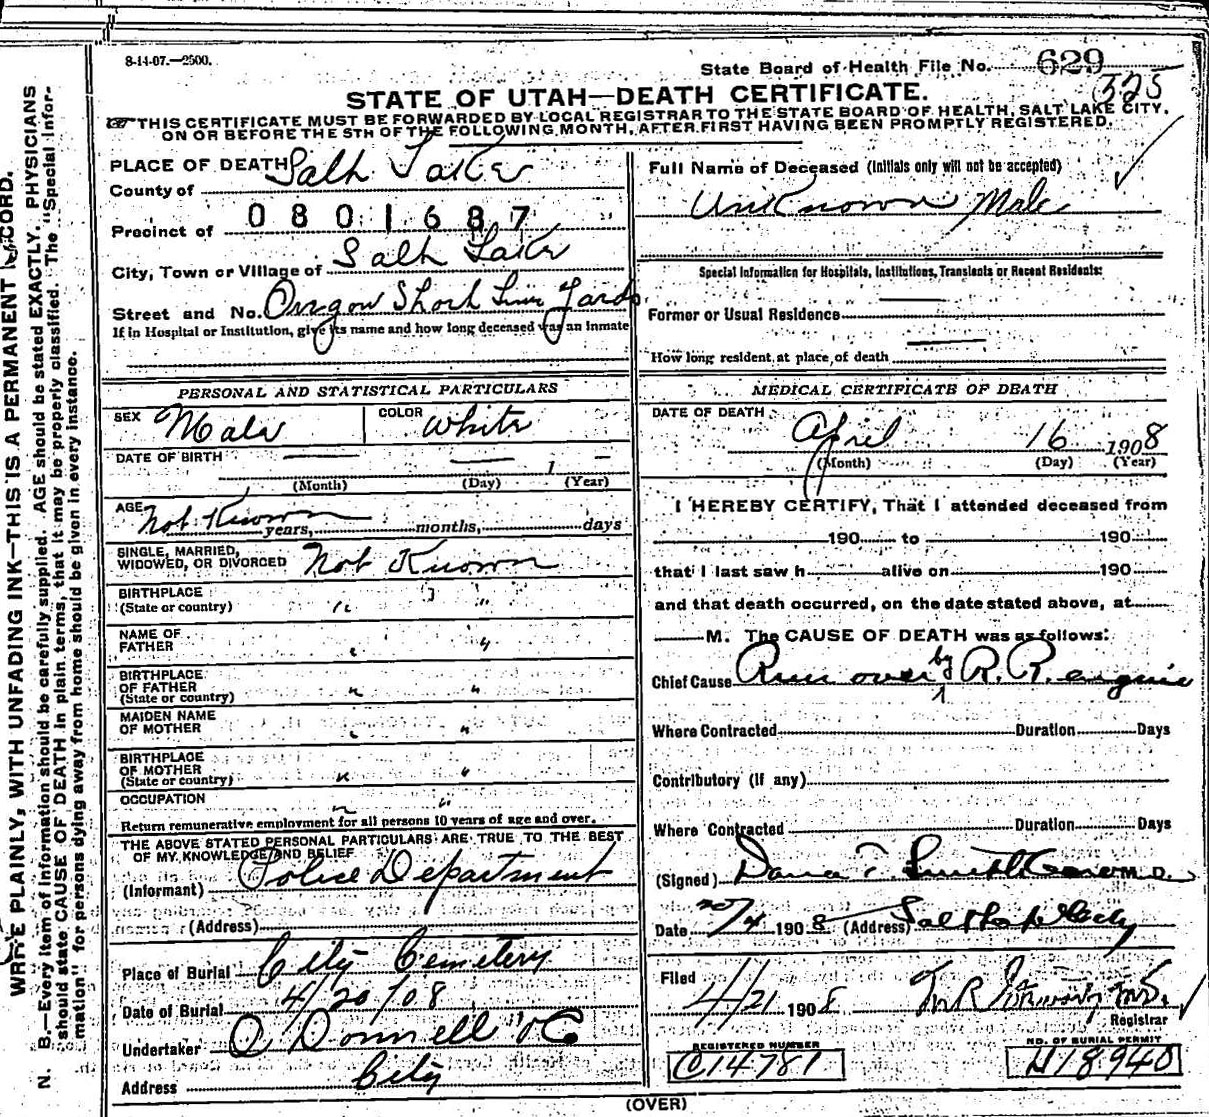 8-14-07.—2500.
State Board of Health File No. 629
325
STATE OF UTAH—DEATH CERTIFICATE.
THIS CERTIFICATE MUST BE FORWARDED BY LOCAL REGISTRAR TO THE STATE BOARD OF HEALTH, SALT LAKE CITY,
ON OR BEFORE THE 5TH OF THE FOLLOWING MONTH, AFTER FIRST HAVING BEEN PROMPTLY REGISTERED.
WRITE PLAINLY, WITH UNFADING INK—THIS IS A PERMANENT RECORD.
N. B.—Every item of information should be carefully supplied. AGE should be stated EXACTLY. PHYSICIANS
should state CAUSE OF DEATH in plain terms, that it may be properly classified. The "Special Infor-
mation" for persons dying away from home should be given in every instance.
PLACE OF DEATH
County of Salt Lake
0801687
Precinct of
City, Town or Village of Salt Lake
Street and No. Oregon Short Line Yards
If in Hospital or Institution, give its name and how long deceased was an inmate
PERSONAL AND STATISTICAL PARTICULARS
SEX Male COLOR White
DATE OF BIRTH — — 1 —
(Month) (Day) (Year)
AGE Not Known years, months, days
SINGLE, MARRIED,
WIDOWED, OR DIVORCED Not Known
BIRTHPLACE
(State or country) " "
NAME OF
FATHER " "
BIRTHPLACE
OF FATHER
(State or country) " "
MAIDEN NAME
OF MOTHER " "
BIRTHPLACE
OF MOTHER
(State or country) " "
OCCUPATION " "
Return remunerative employment for all persons 10 years of age and over.
THE ABOVE STATED PERSONAL PARTICULARS ARE TRUE TO THE BEST
OF MY KNOWLEDGE AND BELIEF
(Informant) Police Department
(Address)
Place of Burial City Cemetery
Date of Burial 4/20/08
Undertaker O Donnell & Co
Address City
Full Name of Deceased (Initials only will not be accepted)
Unknown Male
Special Information for Hospitals, Institutions, Transients or Recent Residents:
Former or Usual Residence —
How long resident at place of death —
MEDICAL CERTIFICATE OF DEATH
DATE OF DEATH
April 16 1908
(Month) (Day) (Year)
I HEREBY CERTIFY, That I attended deceased from
190 to 190
that I last saw h alive on 190
and that death occurred, on the date stated above, at
M. The CAUSE OF DEATH was as follows:
Chief Cause Run over by R. R. engine
Where Contracted Duration Days
Contributory (if any)
Where Contracted Duration Days
(Signed) Dana T. Smith M.D.
Date 20/4 1908 (Address) Salt Lake City
Filed
4/21 1908
Registrar
REGISTERED NUMBER
C14781
NO. OF BURIAL PERMIT
H18940
(OVER)